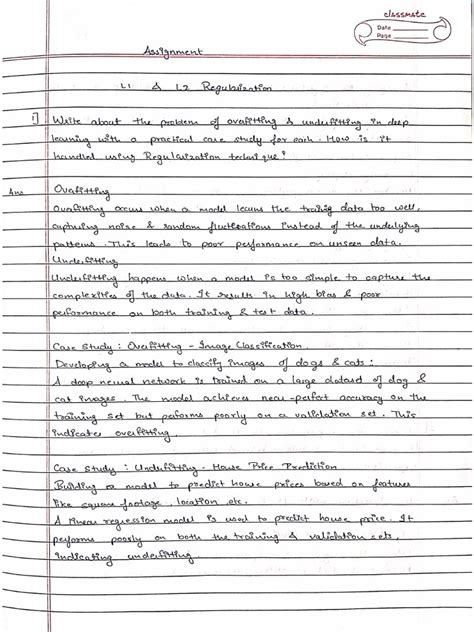 classmate
Date
Page
Assignment
L1 & L2 Regularization
1] Write about the problem of overfitting & underfitting in deep
learning with a practical case study for each. How is it
handled using Regularization technique?
Ans Overfitting
Overfitting occurs when a model learns the training data too well,
capturing noise & random fluctuations instead of the underlying
patterns. This leads to poor performance on unseen data.
Underfitting
Underfitting happens when a model is too simple to capture the
complexities of the data. It results in high bias & poor
performance on both training & test data.
Case Study : Overfitting - Image Classification.
Developing a model to classify images of dogs & cats :
A deep neural network is trained on a large dataset of dog &
cat images. The model achieves near-perfect accuracy on the
training set but performs poorly on a validation set. This
indicates overfitting
Case Study : Underfitting - House Price Prediction
Building a model to predict house prices based on features
like square footage, location, etc.
A linear regression model is used to predict house price. It
performs poorly on both the training & validation sets,
indicating underfitting.